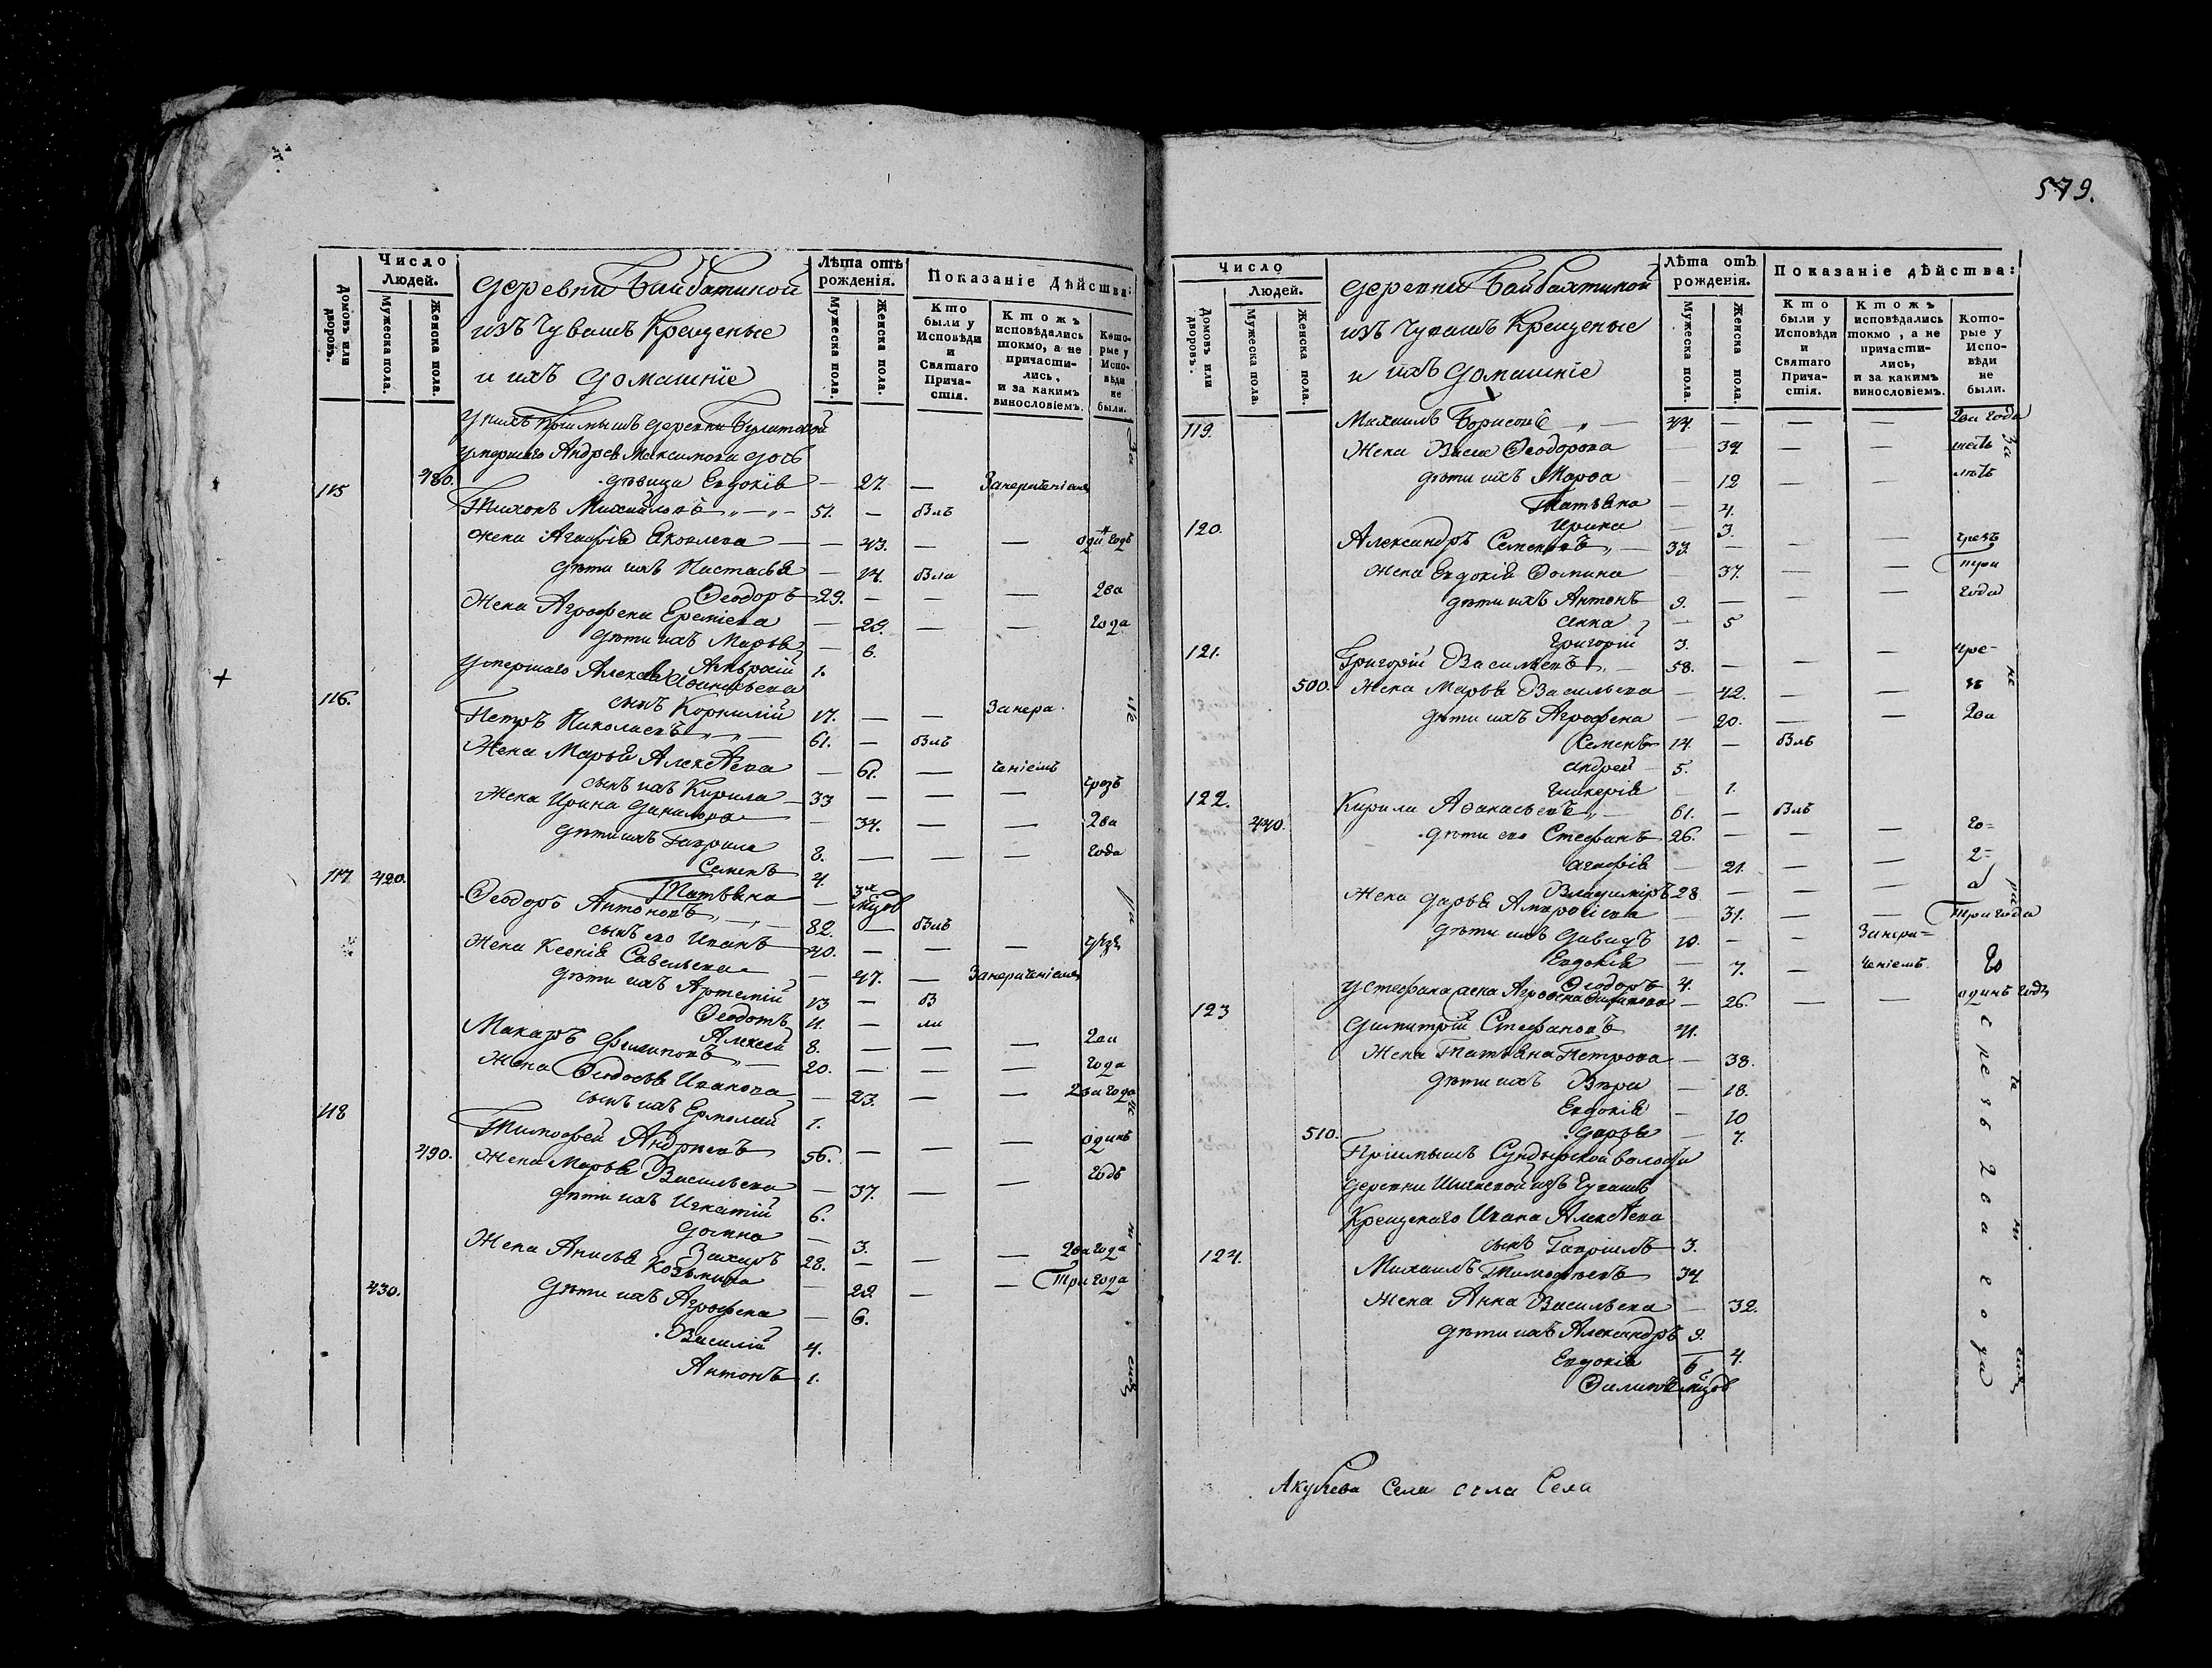 579.
Число
Людей.
Домовъ или дворовъ.
Мужеска пола.
Женска пола.
деревни Байбатиной
изъ Чувашъ Крещеные
и ихъ домашніе
Лѣта отъ рожденія.
Мужеска пола.
Женска пола.
Показаніе дѣйства:
Кто были у Исповѣди и Святаго Причастія.
Ктожъ исповѣдались токмо, а не причастились, и за какимъ винословіемъ.
Которые у Исповѣди не были.
У нихъ Приимышъ деревни
умершаго Андрея Максимова дочь
480. дѣвица Евдокія — 27. —
115 Тихонъ Михайловъ 51. — былъ
жена Агафія Яковлева — 43. — — одинъ годъ
дѣти ихъ Настасья — 14. была
Ѳеодоръ 29. — — — два
Жена Агрофена Еремѣева — 29. — — года
дѣти ихъ Марья — 6.
1.
умершаго Алексѣя
сынъ Корнилій 17. — —
116. Петръ Николаевъ 61. — былъ
Жена Марья Алексѣева — 61. —
сынъ ихъ Кирила 33 — — — чрезъ
Жена Ирина Данилова — 34. — — два
дѣти ихъ Гаврила 8. — — — года
Семенъ 4.
Татьяна — 3 мцов
117 420. Ѳеодоръ Антоновъ 82. — былъ
сынъ его Иванъ 40. — — —
Жена Ксенія Савельева — 47. —
дѣти ихъ Артемій 13 — бы
Ѳеодотъ 11. — ли
Алексей 8. — — — два
Макаръ Филиповъ 20. — — — года
Жена Ѳедосья Иванова — 23. — — два года
сынъ ихъ Ермолай 1.
118 Тимофей Андреевъ 56. — — — одинъ
490. Жена Марья Васильева — 37. — — годъ
дѣти ихъ Игнатій 6.
Домна — 3.
Захаръ 28. — — — два года
Жена Анисья Козьмина — 29. — — три года
430. дѣти ихъ Агрофена — 6.
Василій 4.
Антонъ 1.
Число
Людей.
Домовъ или дворовъ.
Мужеска пола.
Женска пола.
деревни Байбахтиной
изъ Чувашъ Крещеные
и ихъ домашніе
Лѣта отъ рожденія.
Мужеска пола.
Женска пола.
Показаніе дѣйства:
Кто были у Исповѣди и Святаго Причастія.
Ктожъ исповѣдались токмо, а не причастились, и за какимъ винословіемъ.
Которые у Исповѣди не были.
119. Михаилъ Борисовъ 44. — — — два года
Жена Васса Ѳеодорова — 34 — —
дѣти ихъ Марѳа — 12 — —
Татьяна — 4.
Ирина — 3.
120. Александръ Семеновъ 33. — — — чрезъ
Жена Евдокія Ѳомина — 37. — — три
дѣти ихъ Антонъ 9. — — — года
Анна — 5
Григорій 3.
121. Григорій Васильевъ 58. — — — чре-
500. Жена Марья Васильева — 42. — — зъ
дѣти ихъ Агрофена — 20. — — два
Семенъ 14. — былъ
Андрей 5.
Гликерія — 1.
122. Кирила Аѳанасьевъ 61. — былъ
440. дѣти его Стефанъ 26. — — — го-
Агафія — 21. — — д-
Владимиръ 28 — — — а
Жена Дарья — 31. — — три года
дѣти ихъ Давидъ 10. — —
Евдокія — 7. —
Ѳеодоръ 4.
у Стефана жена Агрофена — 26. — — одинъ годъ
123 Димитрій Стефановъ 41.
Жена Татьяна Петрова — 38.
дѣти ихъ Вера — 18.
Евдокія — 10
510. Дарья — 7.
Приимышъ Сундырской волости
деревни изъ Чувашъ
Крещенаго Ивана Алексѣева
сынъ Гавріилъ 3.
124. Михаилъ Тимофеевъ 34
Жена Анна Васильева — 32.
дѣти ихъ Александръ 9.
Евдокія — 4.
Филипъ 6 мцов
чрезъ два года
Акулева Села села Села